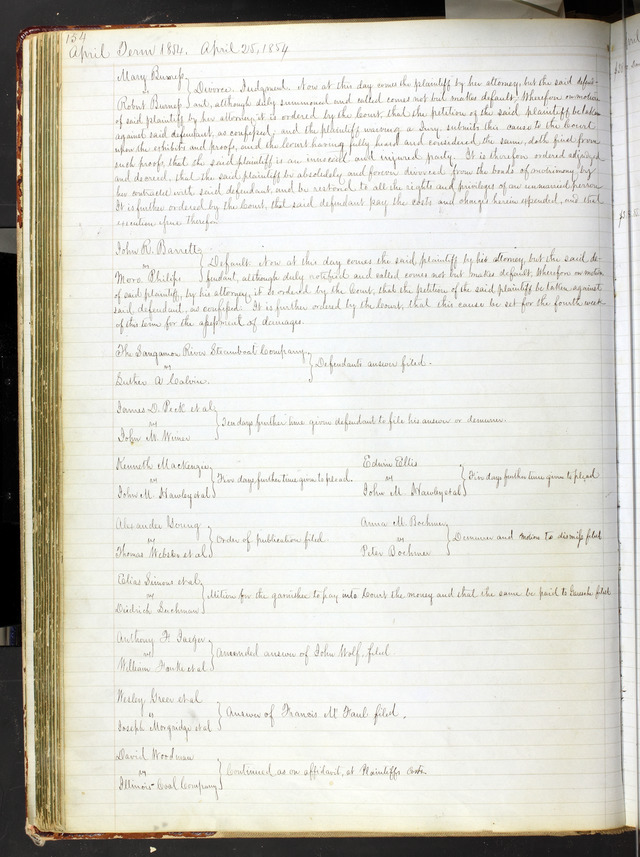 134
April Term 1854. April 25, 1854
Mary Burnep,
vs
Robert Burnep
Divorce. Judgment. Now at this day comes the plaintiff by her attorney, but the said defend-
ant, although duly summoned and called comes not but makes default; Wherefore on motion
of said plaintiff by her attorney, it is ordered by the Court, that the petition of the said plaintiff be taken
against said defendant, as confessed; and the plaintiff waiving a Jury, submits this cause to the Court
upon the exhibits and proofs, and the Court having fully heard and considered the same, doth find from
such proof, that the said plaintiff is an innocent and injured party. It is therefore ordered adjudged
and decreed, that the said plaintiff be absolutely and forever divorced from the bonds of matrimony by
her contracted with said defendant, and be restored to all the rights and privileges of an unmarried person
It is further ordered by the Court, that said defendant pay the costs and charges herein expended, and that
execution issue therefor
John R. Barrett
vs
Mora Philips
Default. Now at this day comes the said plaintiff by his attorney, but the said de-
fendant, although duly notified and called comes not but makes default; Wherefore on motion
of said plaintiff, by his attorney, it is ordered by the Court, that the petition of the said plaintiff be taken against
said defendant, as confessed. It is further ordered by the Court, that this cause be set for the fourth week
of this term for the assessment of damages.
The Sangamon River Steamboat Company
vs
Luther A Calvin.
Defendants answer filed.
James D. Peck et al
vs
John M. Wimer
Ten days further time given defendant to file his answer or demurrer.
Kenneth Mackenzie
vs
John M. Hawley et al
Five days further time given to plead.
Edwin Ellis
vs
John M. Hawley et al
Five days further time given to plead
Alexander Young
vs
Thomas Webster et al
Order of publication filed.
Anna M. Boehmer
vs
Peter Boehmer
Demurrer and motion to dismiss filed
Elias Simons et al
vs
Diedrich
Motion for the garnishee to pay into Court the money and that the same be paid to filed
Anthony F Jaeger
vs
William et al
Amended answer of John Wolf filed
Wesley Greer et al
vs
Joseph Morgridge et al
Answer of Francis Mc Faul filed.
David Woodman
vs
Illinois Coal Company
Continued as on affidavit, at Plaintiffs costs